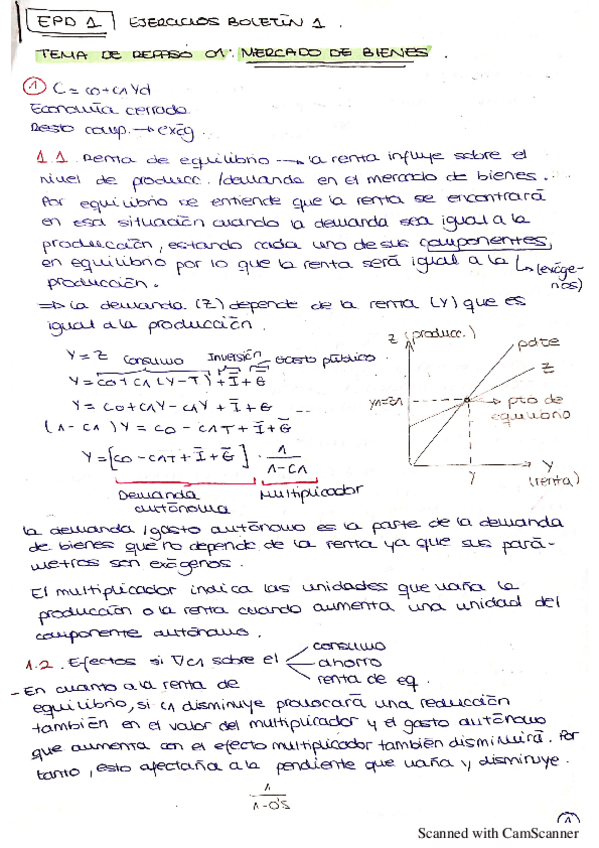 EPD 1 EJERCICIOS BOLETÍN 1.
TEMA DE REPASO 01: MERCADO DE BIENES.
① C = c0 + c1 Yd
Economía cerrada
Resto comp. → exóg.
1.1. Renta de equilibrio → la renta influye sobre el
nivel de producc. /demanda en el mercado de bienes.
Por equilibrio se entiende que la renta se encontrará
en esa situación cuando la demanda sea igual a la
producción, estando cada uno de sus componentes
en equilibrio por lo que la renta será igual a la ↳ (exóge-
producción. nos)
⇒ La demanda (Z) depende de la renta (Y) que es
igual a la producción.
Y = Z Consumo Inversión Gasto público
Y = c0 + c1 (Y - T) + Ī + Ḡ
Y = c0 + c1Y - c1T + Ī + G
(1 - c1) Y = c0 - c1T + Ī + Ḡ
Y = [c0 - c1T + Ī + Ḡ] · 1 / 1 - c1
Demanda autónoma
Multiplicador
Z (producc.)
pdte
Z
pto de
equilibrio
Y
Y
(renta)
la demanda /gasto autónomo es la parte de la demanda
de bienes que no depende de la renta ya que sus pará-
metros son exógenos.
El multiplicador indica las unidades que varía la
producción o la renta cuando aumenta una unidad del
componente autónomo.
1.2. Efectos si ∇c1 sobre el consumo
ahorro
renta de eq.
- En cuanto a la renta de
equilibrio, si c1 disminuye provocará una reducción
también en el valor del multiplicador y el gasto autónomo
que aumenta con el efecto multiplicador también disminuirá. Por
tanto, esto afectaría a la pendiente que varía y disminuye.
1 / 1 - 0'5
1
Scanned with CamScanner